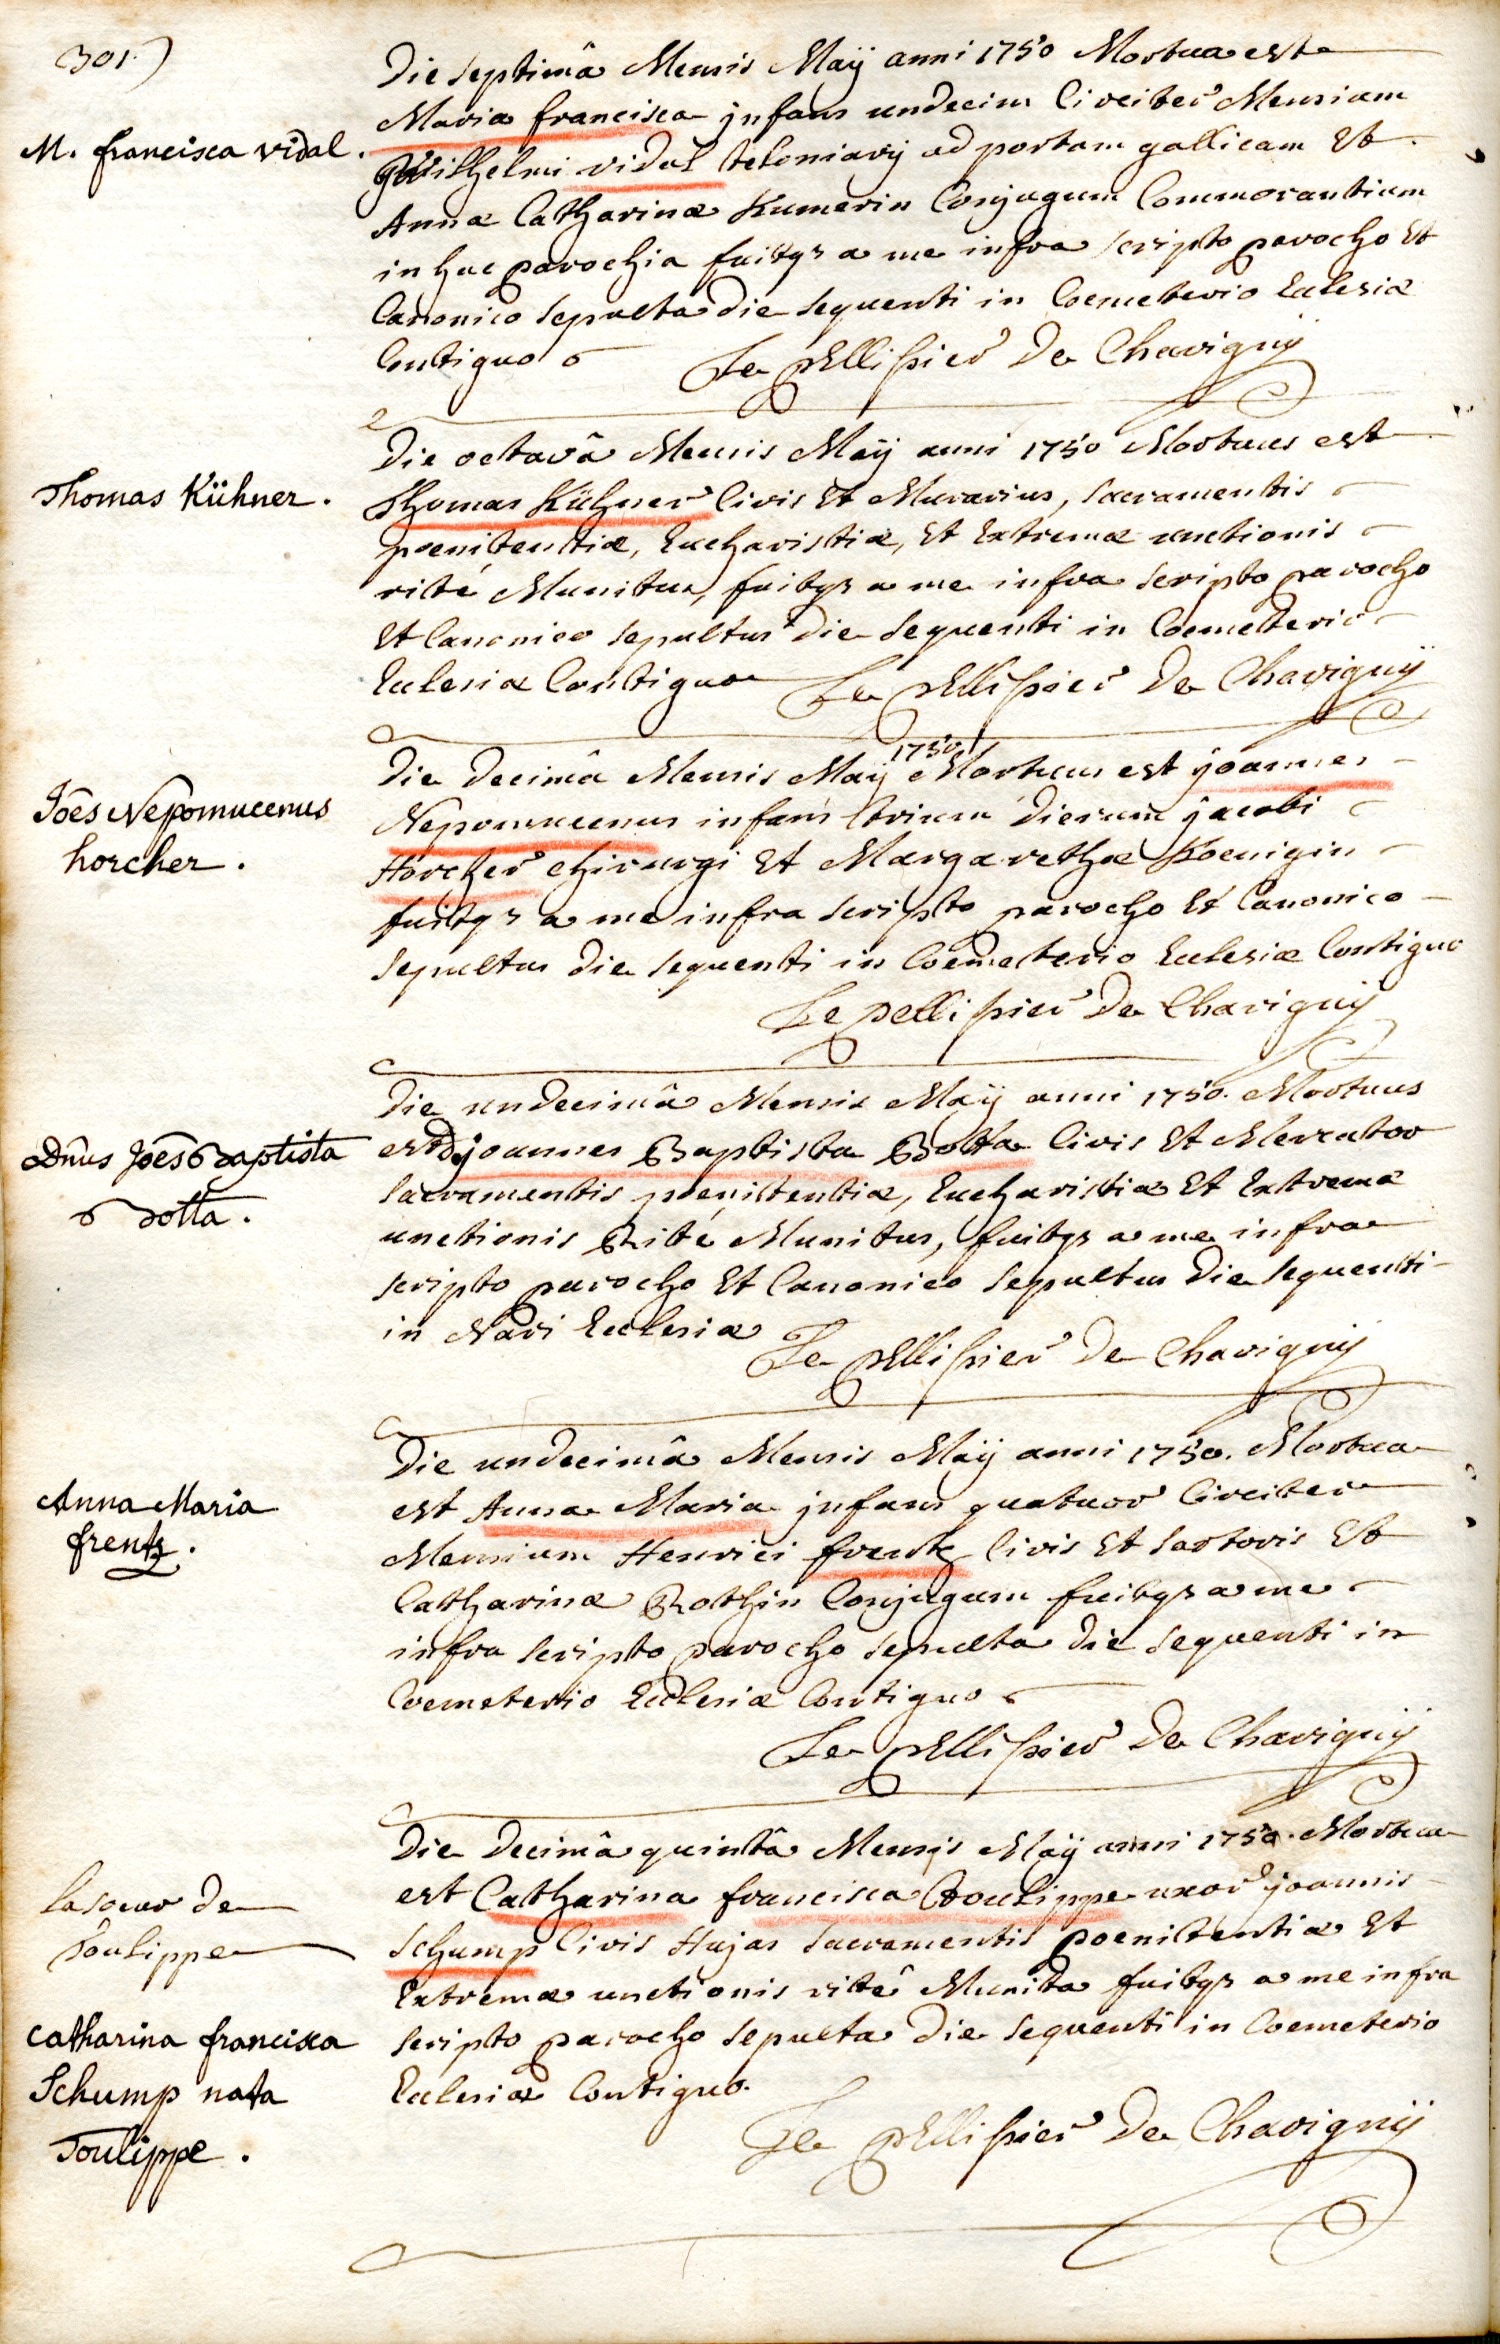 301.)
M. francisca vidal.
Die septimâ Mensis Maÿ anni 1750 Mortua est
Maria francisca jnfans undecim Circiter Mensium
Guilhelmi vidal teloniarij ad portam gallicam Et
Annæ Catharinæ Kumerin Conjugum Commorantium
in hac parochia fuitqz a me infra scripto parocho Et
Canonico sepulta die sequenti in Coemeterio Eclesiæ
Contiguo Le pEllissier De Chavignÿ
Thomas Kühner.
Die octavâ Mensis Maÿ anni 1750 Mortuus est
Thomas Kühner Civis Et Murarius, sacramentis
poenitentiæ, Eucharistiæ, Et Extremæ unctionis
rité Munitus, fuitqz a me infra scripto parocho
Et Canonico sepultus die sequenti in Coemeterio
Eclesiæ Contiguo Le pEllissier De Chavignÿ
Joes Nepomucenus
horcher.
Die Decimâ Mensis Maÿ 1750 Mortuus est joannes
Nepomucenus infans trium Dierum jacobi
Horcher chirurgi Et Margarethæ Koenigin
fuitqz a me infra scripto parocho Et Canonico
sepultus die sequenti in Coemeterio Eclesiæ Contiguo
Le pellissier De Chavignÿ
Dnus Joes Baptista
Botta.
Die undecimâ Mensis Maÿ anni 1750. Mortuus
est D. joannes Baptista Botta Civis Et Mercator
sacramentis poenitentiæ, Eucharistiæ Et Extremæ
unctionis Rité Munitus, fuitqz a me infra
scripto parocho Et Canonico sepultus die sequenti
in Navi Ecclesiæ Le pEllissier De Chavignÿ
Anna Maria
frentz.
Die undecimâ Mensis Maÿ anni 1750. Mortua
est Anna Maria jnfans quatuor Circiter
Mensium Henrici frentz Civis Et sartoris Et
Catharinæ Rothin Conjugum fuitqz a me
infra scripto parocho sepulta die sequenti in
Coemeterio Ecclesiæ Contiguo
Le pEllissier De Chavignÿ
la soeur de
toulippe
Catharina francisca
Schump nata
Toulippe.
Die Decimâ quintâ Mensis Maÿ anni 1750. Mortua
est Catharina francisca toulippe uxor joannis
Schump Civis Hujas sacramentis poenitentiæ Et
Extremæ unctionis rité Munita fuitqz a me infra
scripto parocho sepulta die sequenti in Coemeterio
Eclesiæ Contiguo.
Le pEllissier De Chavignÿ